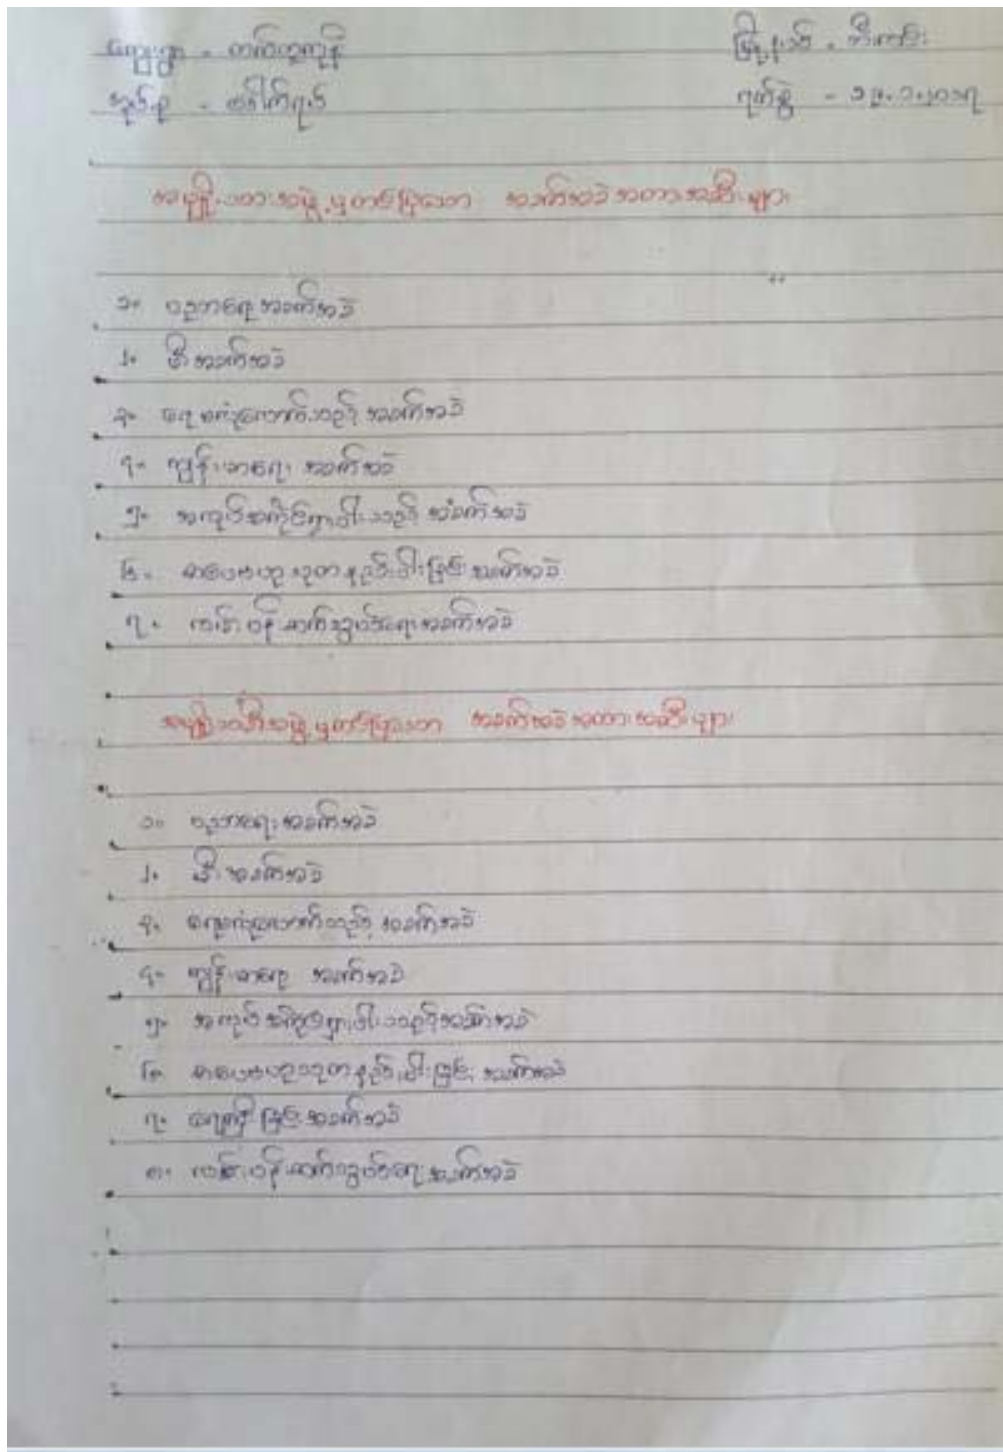 ကျေးရွာ - တက်ကူကုန် မြို့နယ် - ဘီးလင်း
အုပ်စု - ရက်စွဲ - ၁၂.၁.၂၀၁၇
အမျိုးသားအဖွဲ့မှတင်ပြသော အခက်အခဲအတားအဆီးများ
၁။ ပညာရေးအခက်အခဲ
၂။ မီးအခက်အခဲ
၃။ ရေမလုံလောက်သည့်အခက်အခဲ
၄။ ကျန်းမာရေး အခက်အခဲ
၅။ အလုပ်အကိုင်ရှားပါးသည့်အခက်အခဲ
၆။ စာပေဗဟုသုတနည်းပါးခြင်းအခက်အခဲ
၇။ လမ်းပန်းဆက်သွယ်ရေးအခက်အခဲ
အမျိုးသမီးအဖွဲ့မှတင်ပြသော အခက်အခဲအတားအဆီးများ
၁။ ပညာရေးအခက်အခဲ
၂။ မီးအခက်အခဲ
၃။ ရေမလုံလောက်သည့်အခက်အခဲ
၄။ ကျန်းမာရေး အခက်အခဲ
၅။ အလုပ်အကိုင်ရှားပါးသည့်အခက်အခဲ
၆။ စာပေဗဟုသုတနည်းပါးခြင်းအခက်အခဲ
၇။ ရေကြီးခြင်းအခက်အခဲ
၈။ လမ်းပန်းဆက်သွယ်ရေးအခက်အခဲ